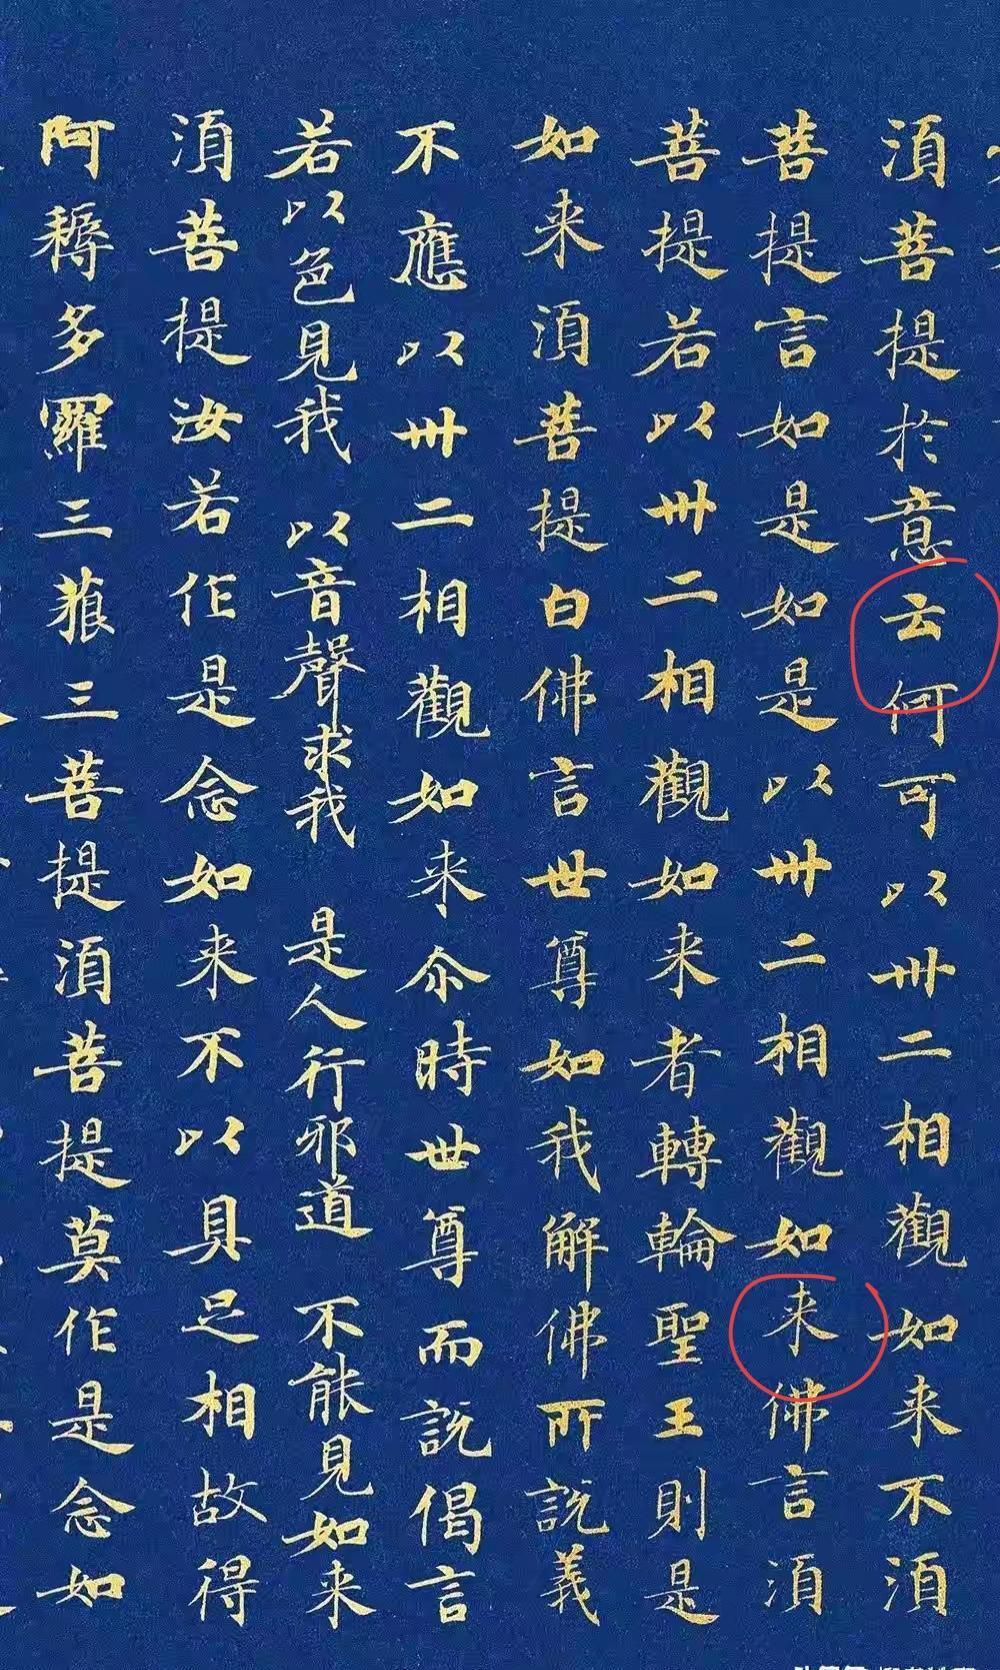 湏菩提於意云何可以卅二相觀如来不湏
菩提言如是如是以卅二相觀如来佛言湏
菩提若以卅二相觀如来者轉輪聖王則是
如来湏菩提白佛言世尊如我解佛所説義
不應以卅二相觀如来尒時世尊而説偈言
若以色見我 以音聲求我 是人行邪道 不能見如来
湏菩提汝若作是念如来不以具足相故得
阿耨多羅三藐三菩提湏菩提莫作是念如